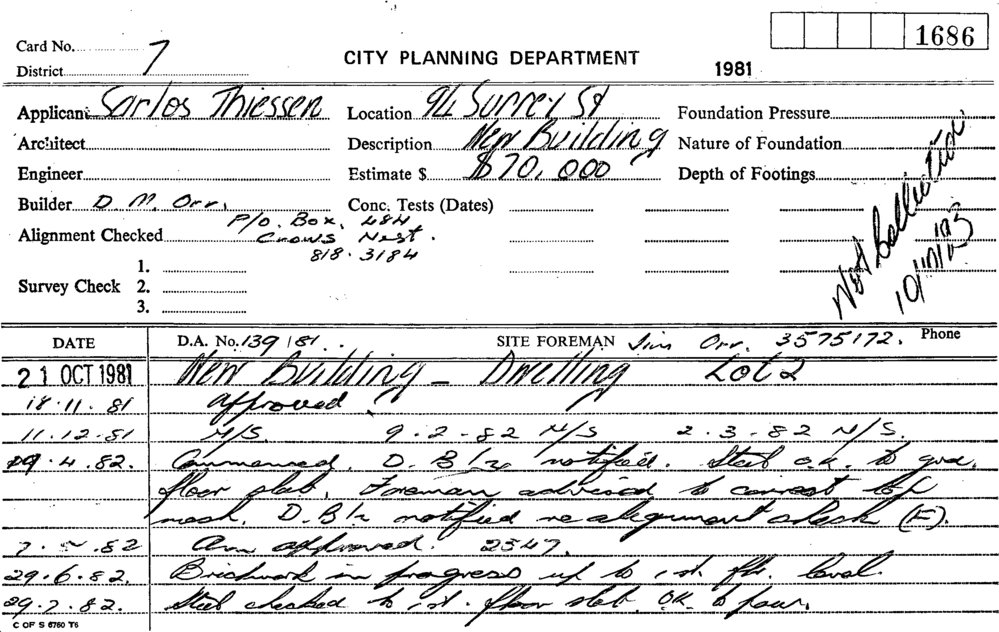 Card No. 1686
District 7 CITY PLANNING DEPARTMENT 1981
Applicant Sarlos Thiessen Location 94 Surrey St Foundation Pressure
Architect Description New Building Nature of Foundation
Engineer Estimate $ $70,000 Depth of Footings
Builder D M. Orr. Conc. Tests (Dates)
P/O. Box, 484
Alignment Checked Crows Nest.
818.3184
1.
Survey Check 2.
3.
Not Collection
DATE D.A. No. 139/81.. SITE FOREMAN Jim Orr. 3575172. Phone
21 OCT 1981 New Building - Dwelling Lot 2
18.11.81 approved
11.12.81 N/S. 9.2-82 N/S 2.3.82 N/S.
29.4.82. Commenced. D.B/r notified. Steel o.k. to grd.
floor slab. Foreman advised to correct top
mesh. D.B/r notified re alignment check (F).
7.5.82 Am approved. 2547.
29.6.82. Brickwork in progress up to 1st. flr. level.
29.7.82. Steel checked to 1st. floor slab. OK to pour.
C OF S 6760 T6